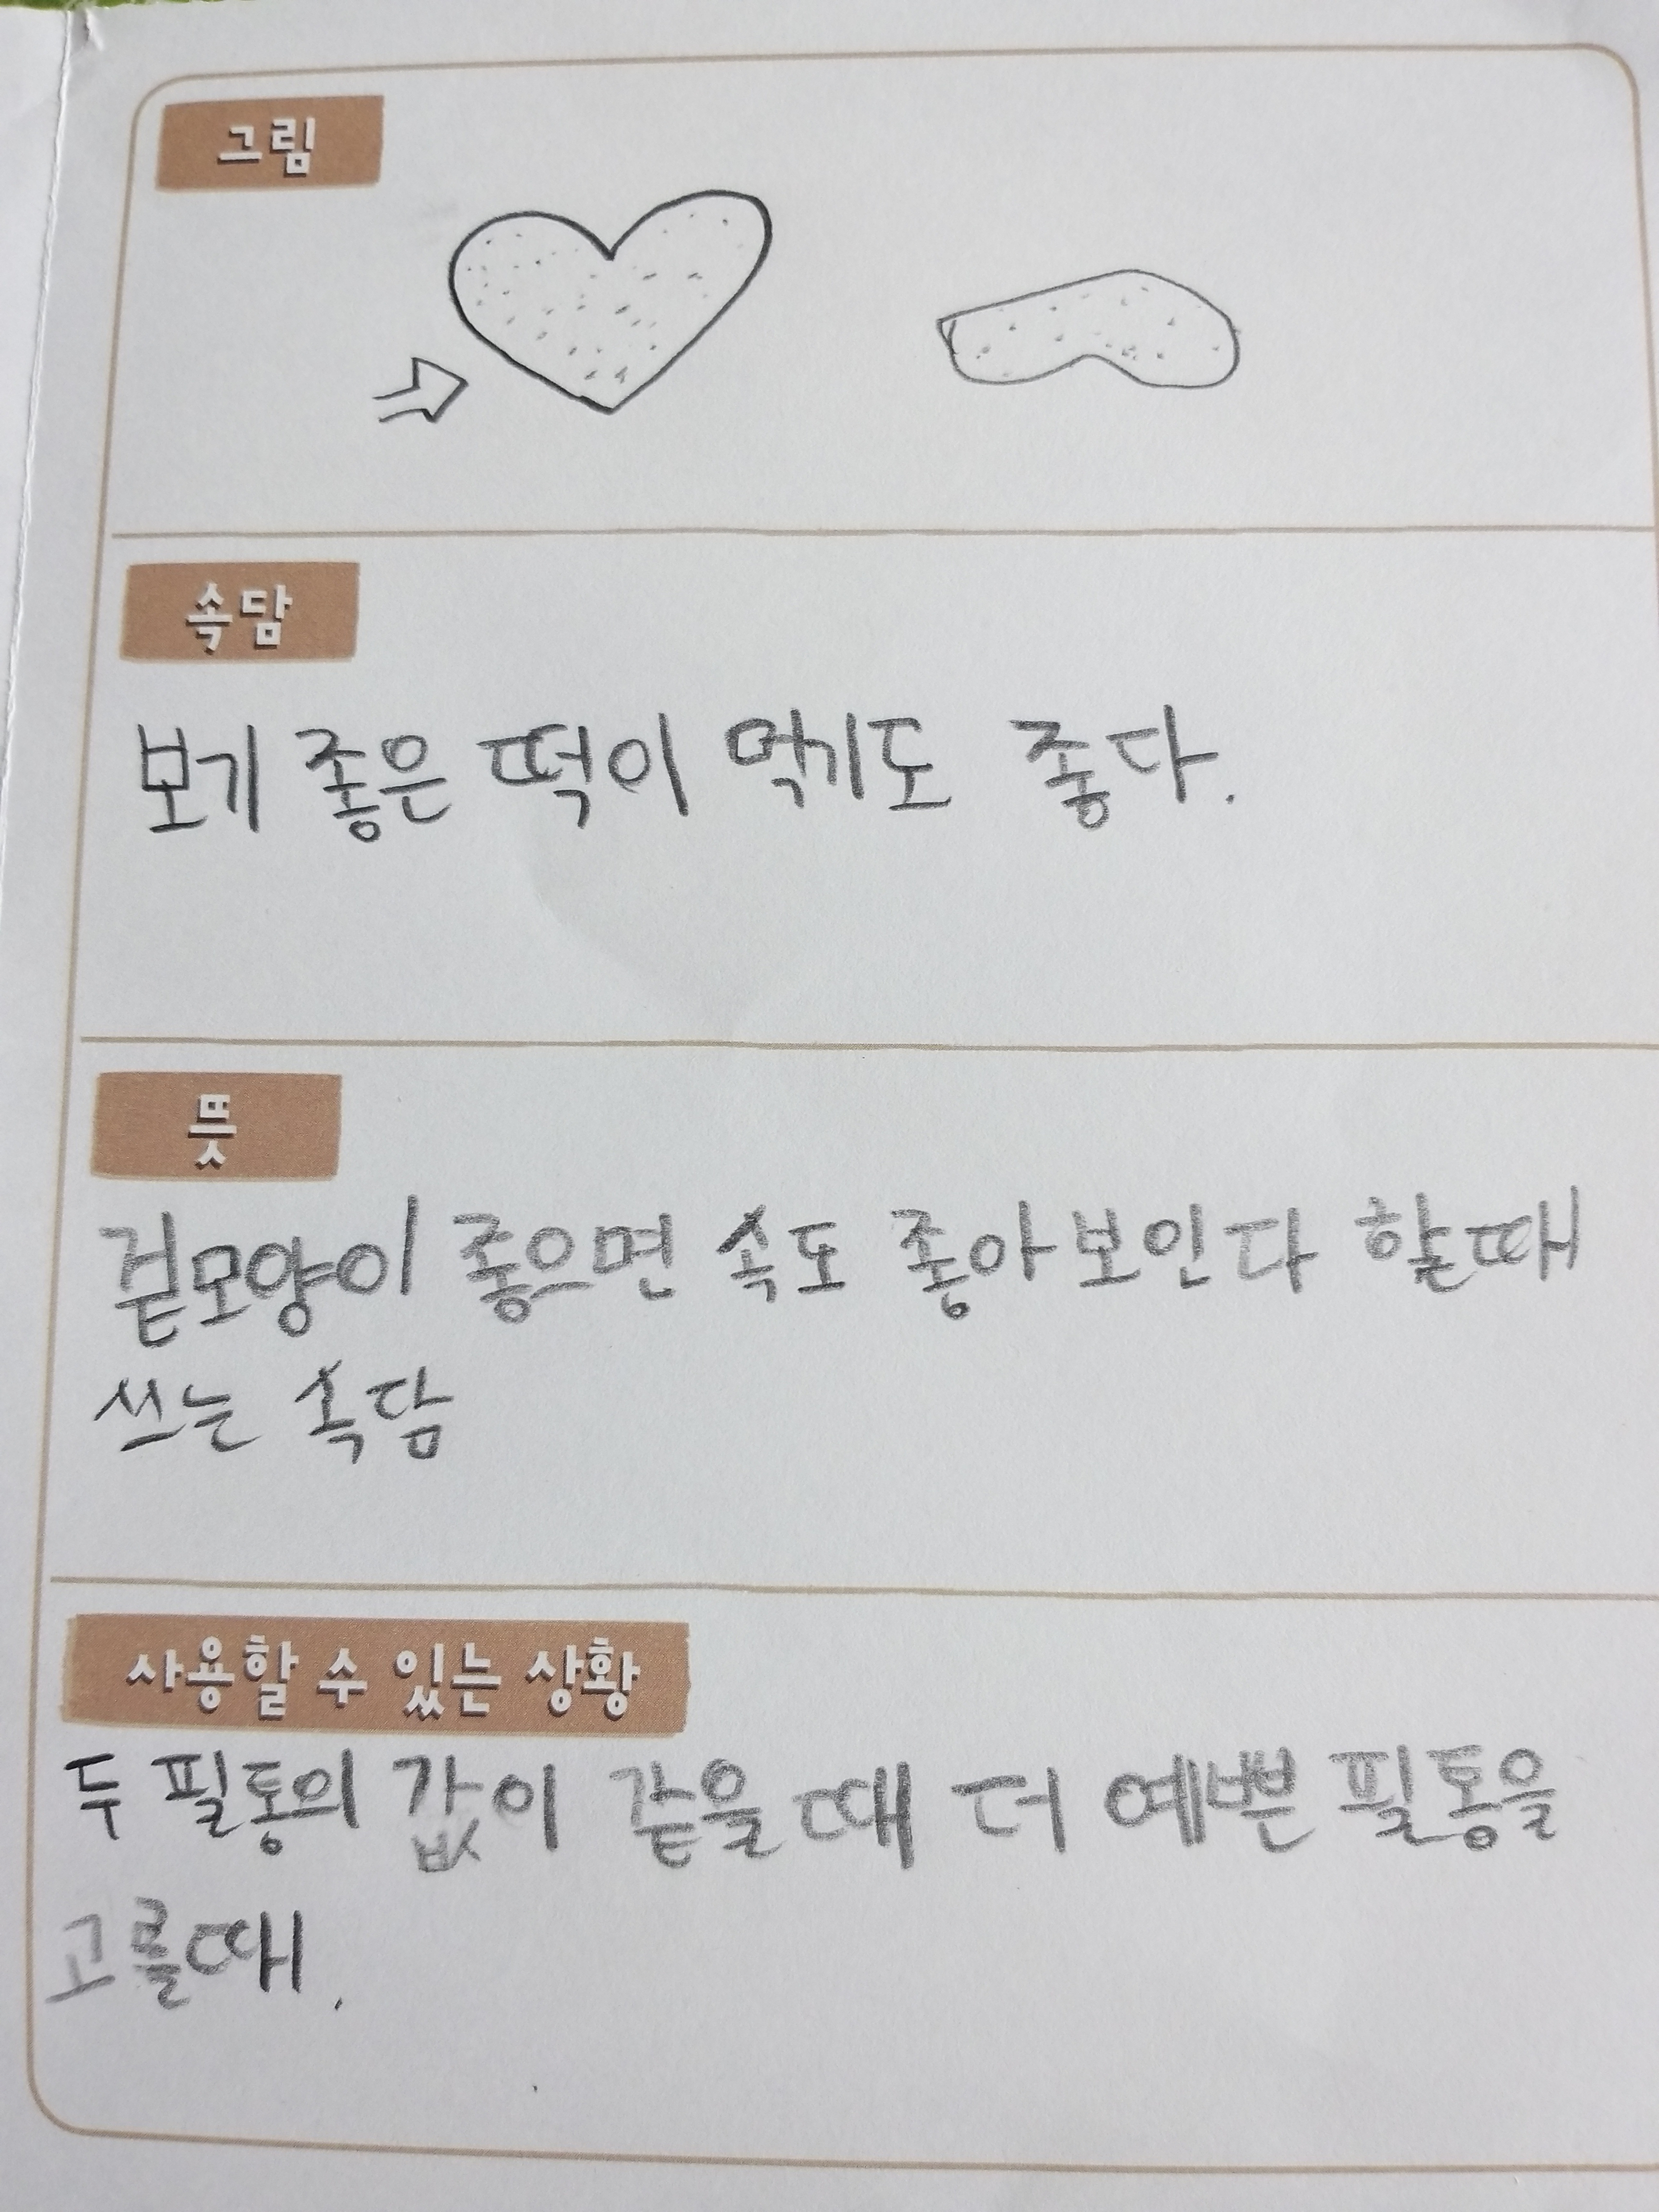 그림
속담
보기 좋은 떡이 먹기도 좋다.
뜻
겉모양이 좋으면 속도 좋아보인다 할때
쓰는 속담
사용할 수 있는 상황
두 필통의 값이 같을때 더 예쁜 필통을
고를때.